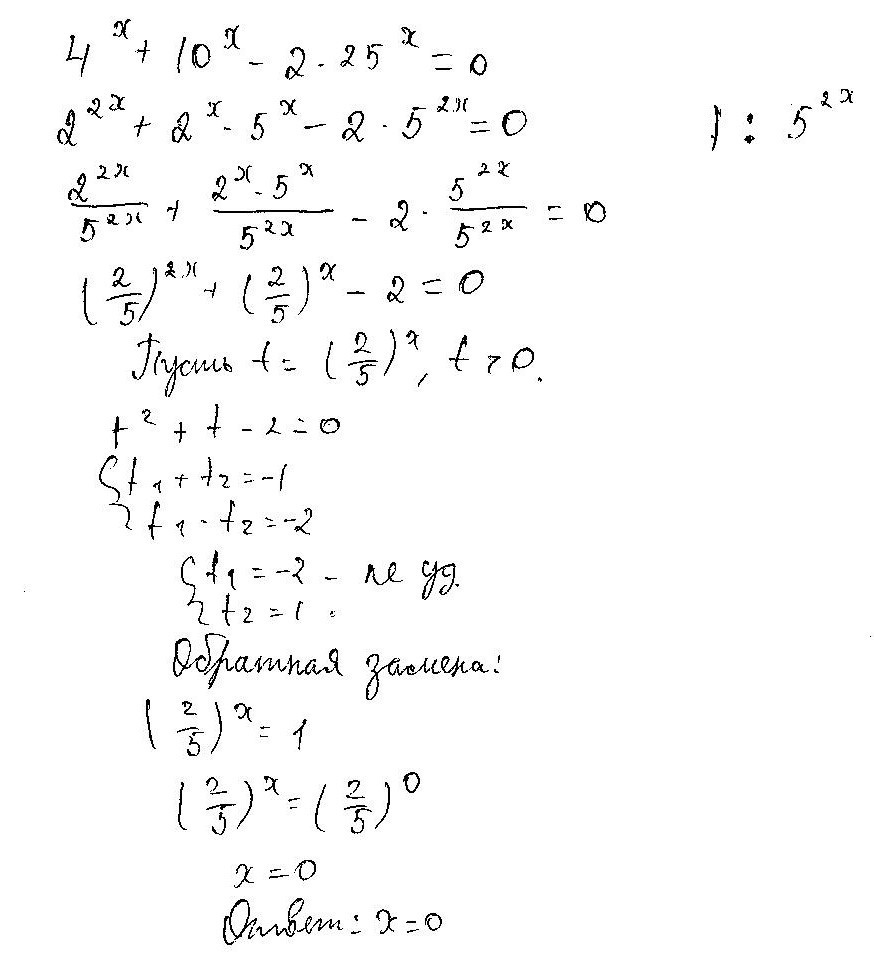 4^x + 10^x - 2 · 25^x = 0
2^{2x} + 2^x · 5^x - 2 · 5^{2x} = 0 | : 5^{2x}
\frac{2^{2x}}{5^{2x}} + \frac{2^x · 5^x}{5^{2x}} - 2 · \frac{5^{2x}}{5^{2x}} = 0
(\frac{2}{5})^{2x} + (\frac{2}{5})^x - 2 = 0
Пусть t = (\frac{2}{5})^x, t > 0.
t^2 + t - 2 = 0
{ t_1 + t_2 = -1
t_1 · t_2 = -2
{ t_1 = -2 - не уд.
t_2 = 1 .
Обратная замена:
(\frac{2}{5})^x = 1
(\frac{2}{5})^x = (\frac{2}{5})^0
x = 0
Ответ: x = 0